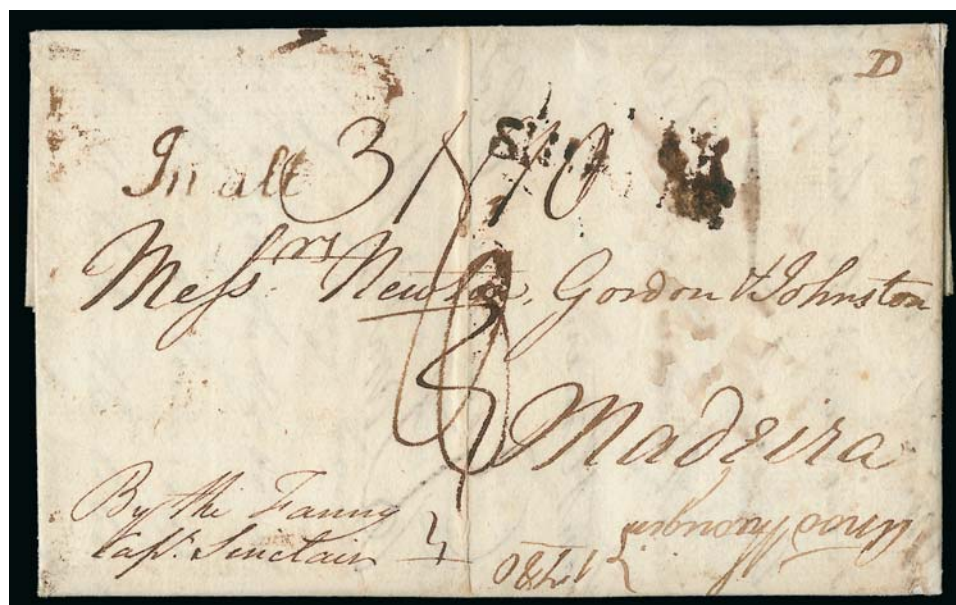 D
In all 3N10
Messrs. Newton, Gordon & Johnston
Madeira
By the Fanny
Capt. Sinclair
1780